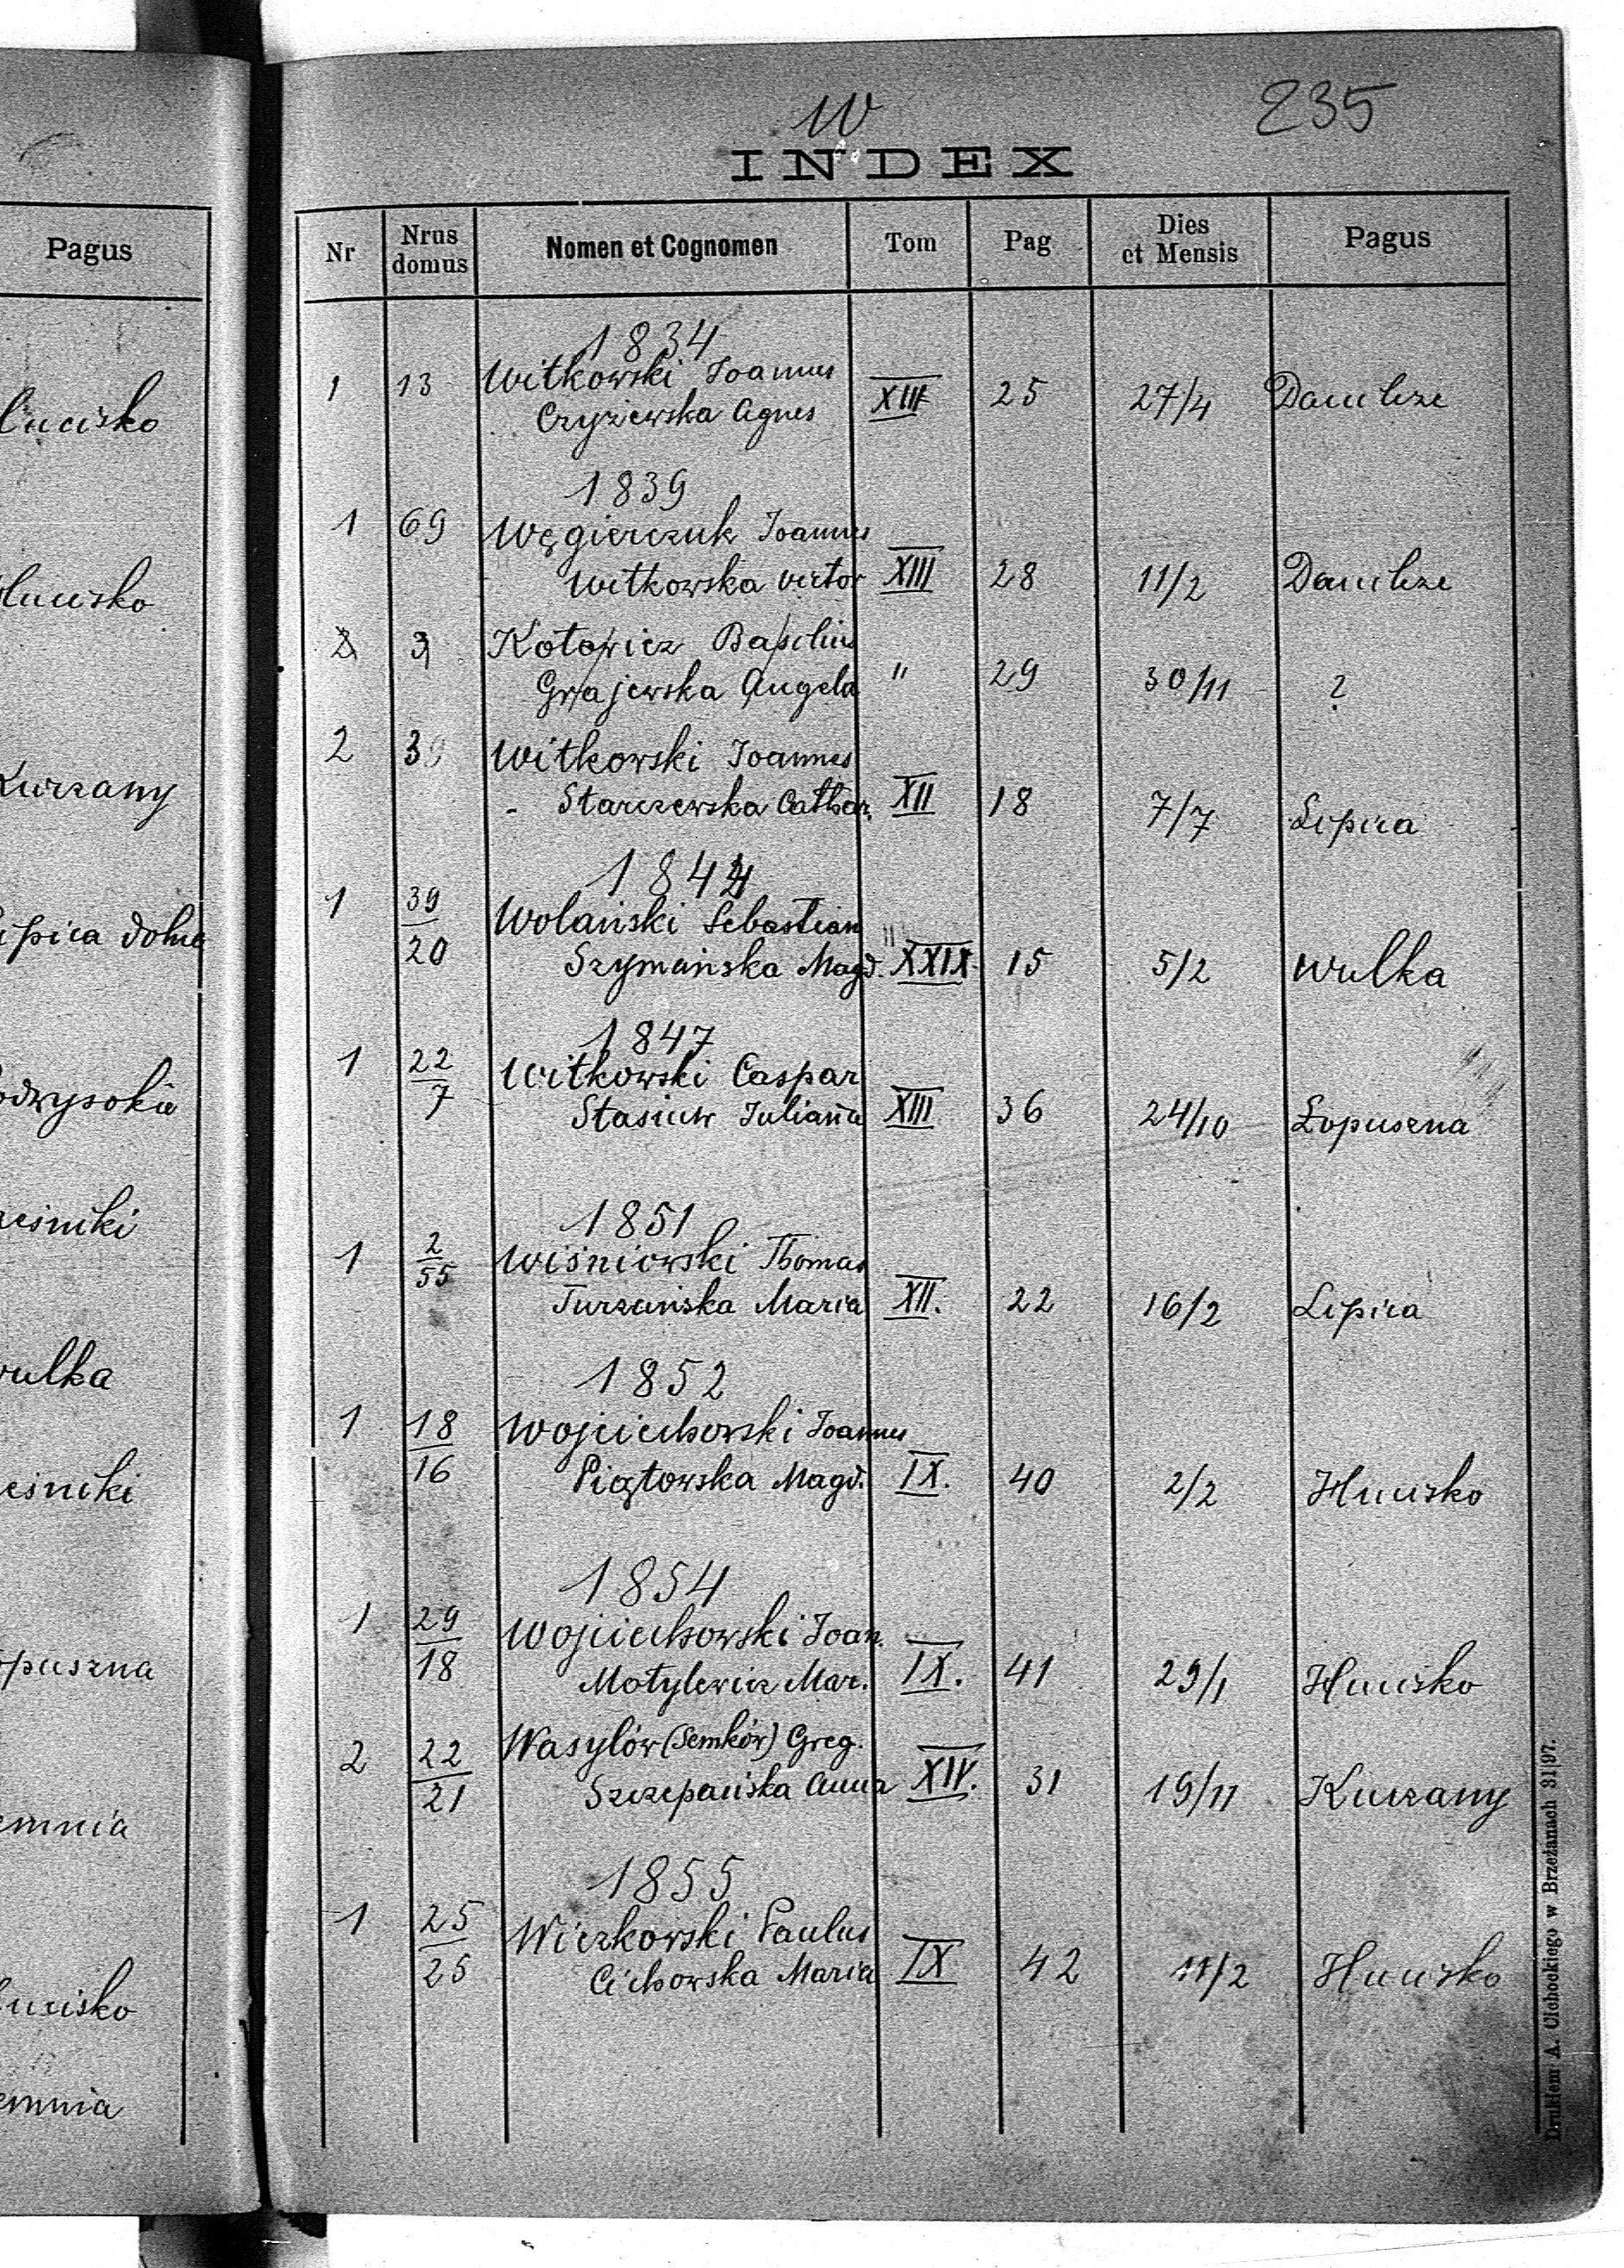 Pagus
Hucisko
Hucisko
Kurzany
Lipica dolna
Podwysokie
wulka
Hucisko
W
235
INDEX
Nr Nrus domus Nomen et Cognomen Tom Pag Dies et Mensis Pagus
1834
1 13 Witkowski Joannes
Czyżewska Agnes XIII 25 27/4
1839
1 69 Węgierczuk Joannes
Witkowska Victor XIII 28 11/2
2 3 Kotowicz Basilius
Grajewska Angela " 29 30/11 ?
2 39 Witkowski Joannes
Starczewska Cathar. XII 18 7/7 Lipica
1844
1 39/20 Wolański Sebastian
Szymańska Magd. XXIX 15 5/2 Wulka
1847
1 22/7 Witkowski Caspar
Stasiuw Juliana XIII 36 24/10 Łopuszna
1851
1 2/55 Wiśniowski Thomas
Turzańska Maria XII. 22 16/2 Lipica
1852
1 18/16 Wojciechowski Joannes
Piątowska Magd. IX. 40 2/2 Hucisko
1854
1 29/18 Wojciechowski Joan.
Motylewicz Mar. IX. 41 29/1 Hucisko
2 22/21 Wasylów (Semków) Greg.
Szczepańska Anna XIV. 31 19/11 Kurzany
1855
1 25/25 Wiczkowski Paulus
Cichowska Maria IX 42 11/2 Hucisko
Drukiem A. Cichockiego w Brzeżanach 31|97.